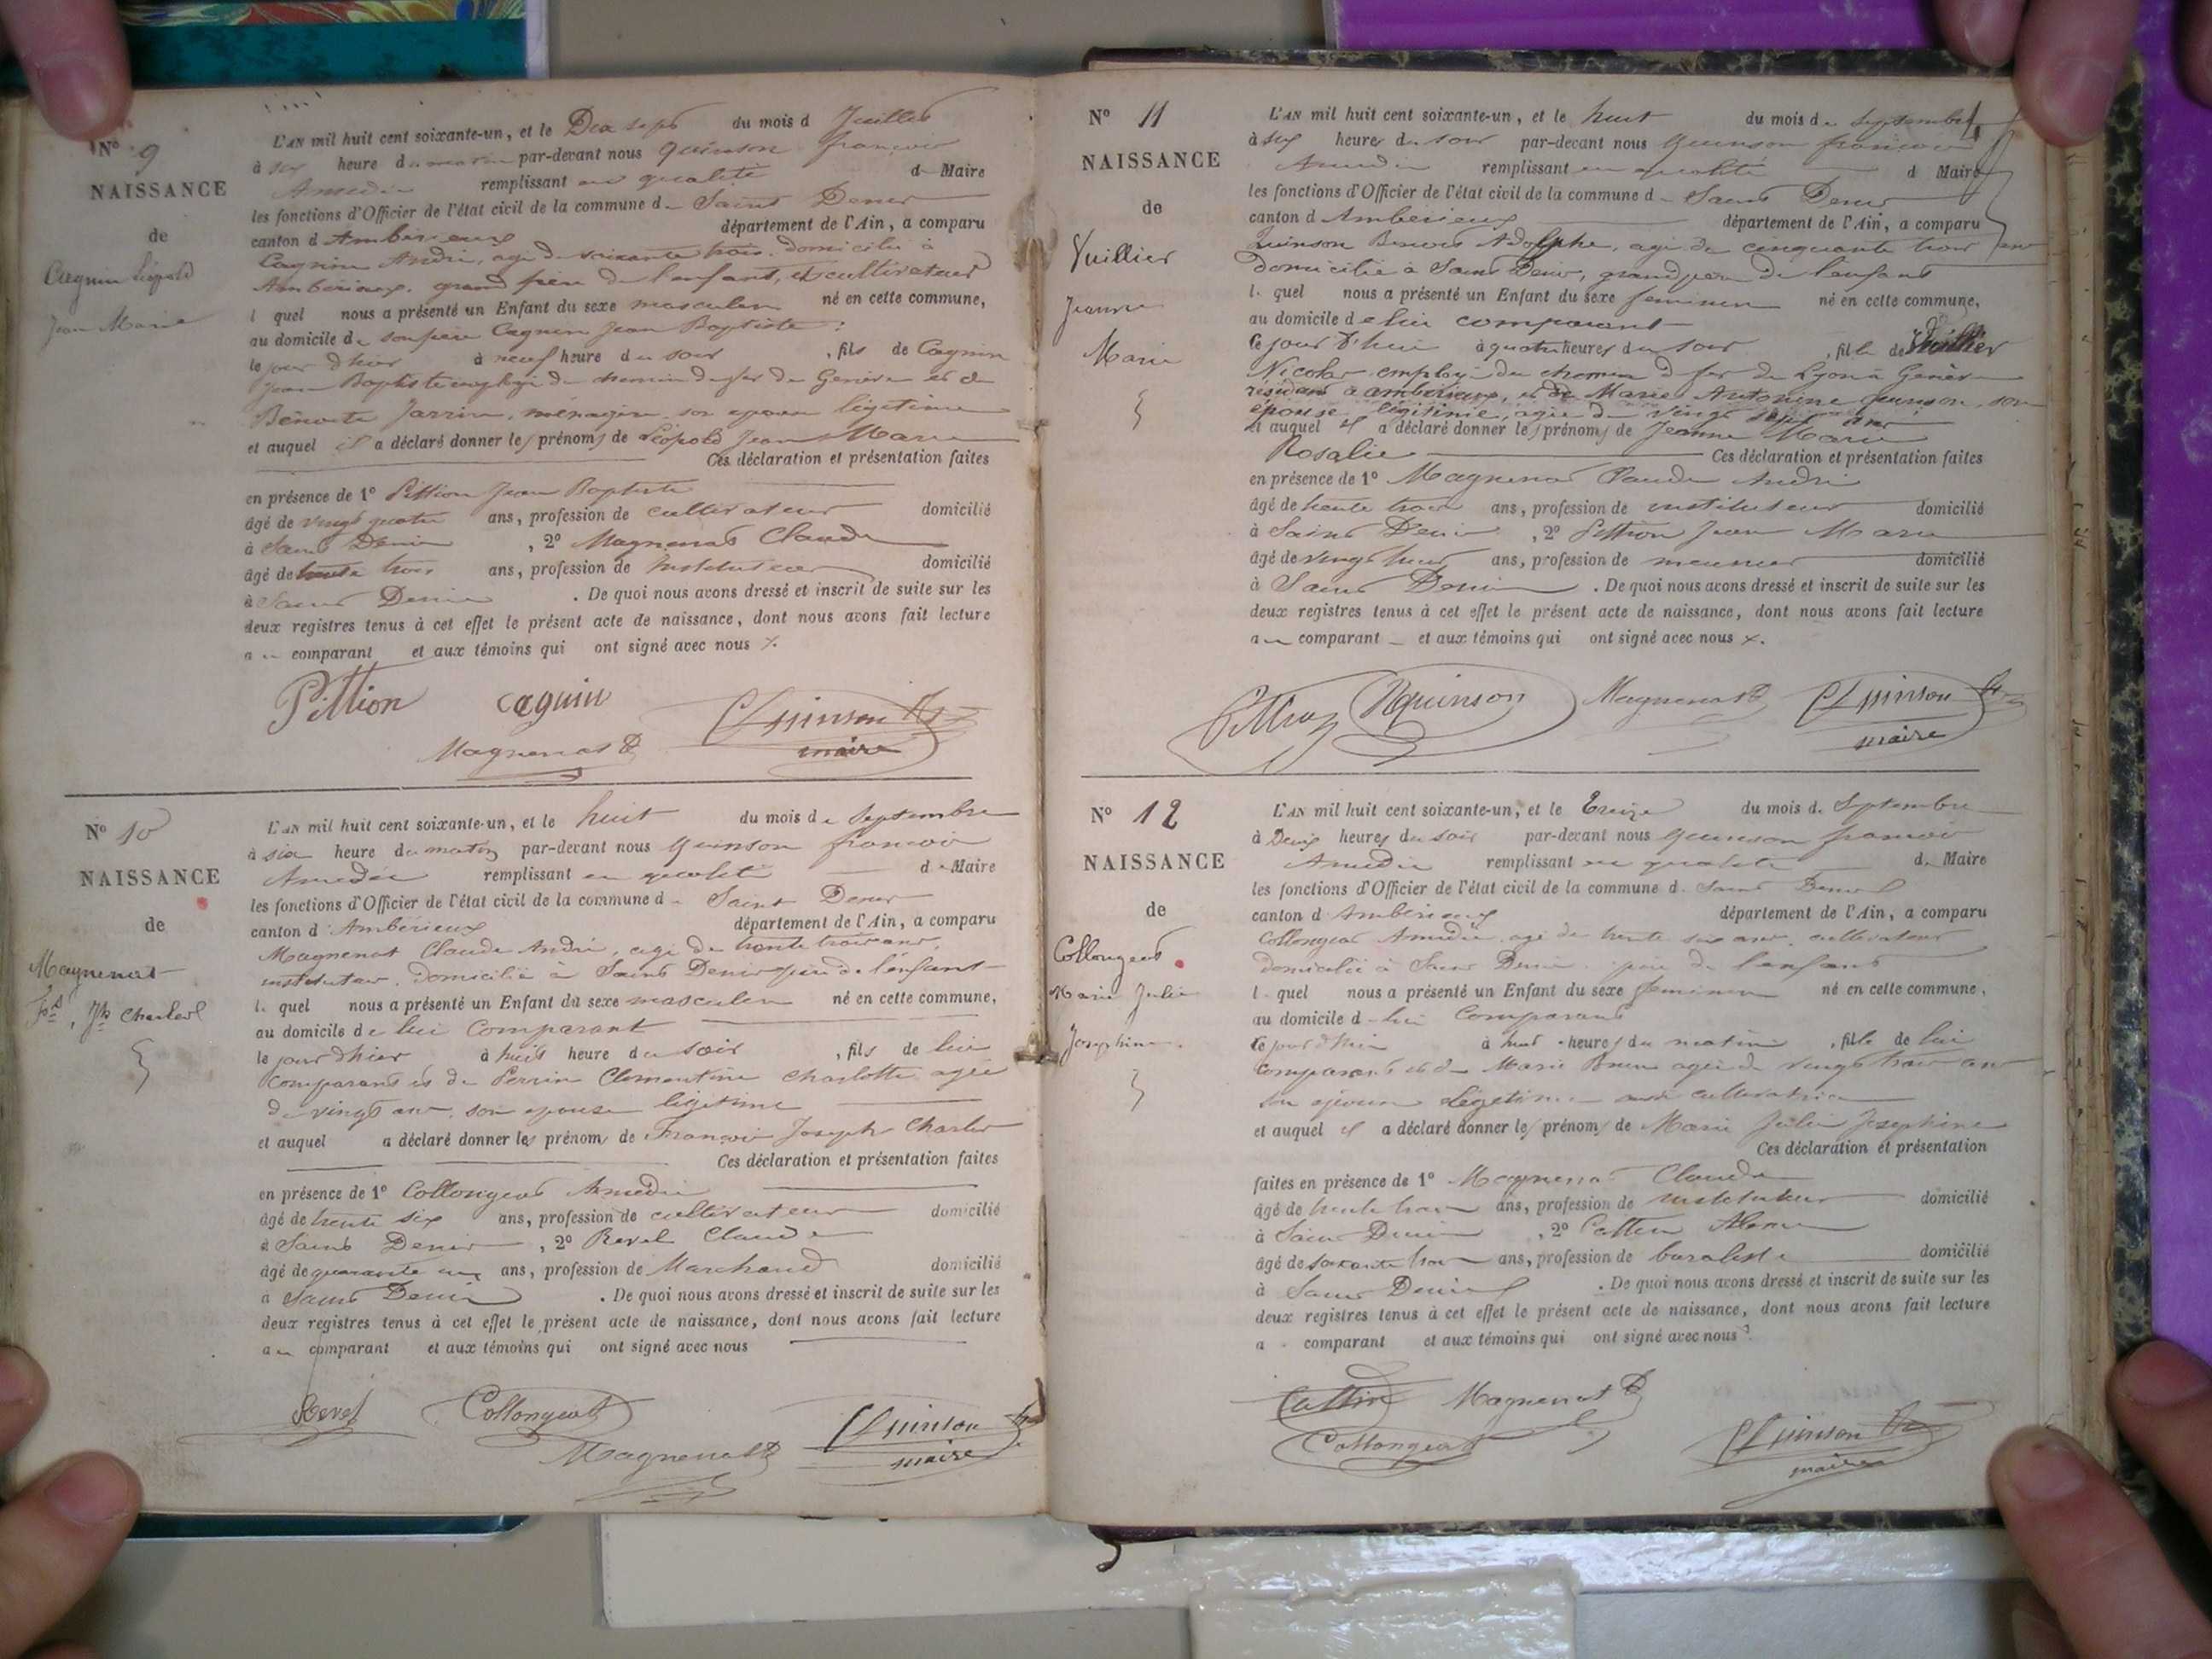 N° 9
NAISSANCE
de
Cagnin Léopold
Jean Marie
L'AN mil huit cent soixante-un, et le Dix sept du mois d Juillet
à six heure du matin par-devant nous Quinson françois
Amédée remplissant en qualité d Maire
les fonctions d'Officier de l'état civil de la commune d Saint Denis
canton d Ambérieux département de l'Ain, a comparu
Cagnin André, agé de soixante trois, domicilié à
Ambérieux, grand père de l'enfant, et cultivateur
l quel nous a présenté un Enfant du sexe masculin né en cette commune,
au domicile de son père Cagnin Jean Baptiste
le jour d'hier à neuf heure du soir , fils de Cagnin
Jean Baptiste employé du chemin de fer de Genève et de
Benoite Jarrin, ménagère, son épouse légitime
et auquel il a déclaré donner les prénoms de Léopold Jean Marie
Ces déclaration et présentation faites
en présence de 1° Pittion Jean Baptiste
âgé de vingt quatre ans, profession de cultivateur domicilié
à Saint Denis , 2° Magnenat Claude
âgé de trente trois ans, profession de Instituteur domicilié
à Saint Denis . De quoi nous avons dressé et inscrit de suite sur les
deux registres tenus à cet effet le présent acte de naissance, dont nous avons fait lecture
au comparant et aux témoins qui ont signé avec nous
Pittion Cagnin Quinson
Magnenat maire
N° 10
NAISSANCE
de
Magnenat
Fçs, Jh Charles
L'AN mil huit cent soixante-un, et le huit du mois de Septembre
à six heure du matin par-devant nous Quinson françois
Amedée remplissant en qualité de Maire
les fonctions d'Officier de l'état civil de la commune d Saint Denis
canton d Ambérieux département de l'Ain, a comparu
Magnenat Claude André, agé de trente trois ans,
instituteur, domicilié à Saint Denis père de l'enfant
le quel nous a présenté un Enfant du sexe masculin né en cette commune,
au domicile de lui comparant
le jour d'hier à huit heure du soir , fils de lui
comparant et de Perrin Clementine Charlotte agée
de vingt ans, son epouse legitime
et auquel a déclaré donner les prénoms de François Joseph Charles
Ces déclaration et présentation faites
en présence de 1° Collongeat Amedée
âgé de trente six ans, profession de cultivateur domicilié
à Saint Denis , 2° Revel Claude
âgé de quarante ans, profession de Marchand domicilié
à Saint Denis . De quoi nous avons dressé et inscrit de suite sur les
deux registres tenus à cet effet le présent acte de naissance, dont nous avons fait lecture
au comparant et aux témoins qui ont signé avec nous
Revel Collongeat Quinson
Magnenat maire
N° 11
NAISSANCE
de
Vuillier
Jeanne
Marie
L'AN mil huit cent soixante-un, et le huit du mois de Septembre
à six heures du soir par-devant nous Quinson françois
Amedée remplissant en qualité d Maire
les fonctions d'Officier de l'état civil de la commune d Saint Denis
canton d Ambérieux département de l'Ain, a comparu
Quinson Benoit Adolphe, agé de cinquante trois ans
domicilié à Saint Denis, grand père de l'enfant
le quel nous a présenté un Enfant du sexe feminin né en cette commune,
au domicile de lui comparant
ce jour d'hui à quatre heures du soir , fille de Vuillier
Nicolas employé du chemin de fer de Lyon à Genève
résidant à ambérieux, et de Marie Antonine Quinson, son
épouse légitime, agée de vingt sept ans
et auquel il a déclaré donner les prénoms de Jeanne Marie
Rosalie Ces déclaration et présentation faites
en présence de 1° Magnenat Claude André
âgé de trente trois ans, profession de instituteur domicilié
à Saint Denis , 2° Pittion Jean Marie
âgé de vingt huit ans, profession de meunier domicilié
à Saint Denis . De quoi nous avons dressé et inscrit de suite sur les
deux registres tenus à cet effet le présent acte de naissance, dont nous avons fait lecture
au comparant et aux témoins qui ont signé avec nous
Pittion Quinson Magnenat Quinson
maire
N° 12
NAISSANCE
de
Collongeat
Marie Julie
Josephine
L'AN mil huit cent soixante-un, et le Treize du mois de Septembre
à Deux heures du soir par-devant nous Quinson françois
Amedée remplissant en qualité de Maire
les fonctions d'Officier de l'état civil de la commune d Saint Denis
canton d Ambérieux département de l'Ain, a comparu
Collongeat Amédée, agé de trente six ans, cultivateur
domicilié à Saint Denis père de l'enfant
l quel nous a présenté un Enfant du sexe feminin né en cette commune,
au domicile d lui comparant
ce jour d'hui à heures du matin , fille de lui
comparant et de Marie Brun agée de vingt trois ans
son épouse légitime cultivatrice
et auquel il a déclaré donner les prénoms de Marie Julie Josephine
Ces déclaration et présentation
faites en présence de 1° Magnenat Claude
âgé de trente trois ans, profession de instituteur domicilié
à Saint Denis , 2° Cattin
âgé de soixante trois ans, profession de buraliste domicilié
à Saint Denis . De quoi nous avons dressé et inscrit de suite sur les
deux registres tenus à cet effet le présent acte de naissance, dont nous avons fait lecture
a comparant et aux témoins qui ont signé avec nous
Cattin Magnenat
Collongeat Quinson
maire